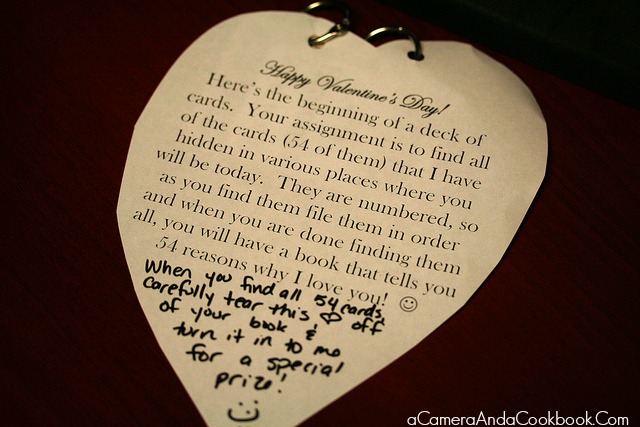 Happy Valentine's Day!
Here's the beginning of a deck of
cards. Your assignment is to find all
of the cards (54 of them) that I have
hidden in various places where you
will be today. They are numbered, so
as you find them file them in order
and when you are done finding them
all, you will have a book that tells you
54 reasons why I love you! ☺
When you find all 54 cards,
carefully tear this ♡ off
of your book &
turn it in to me
for a special
prize!
aCameraAndaCookbook.Com